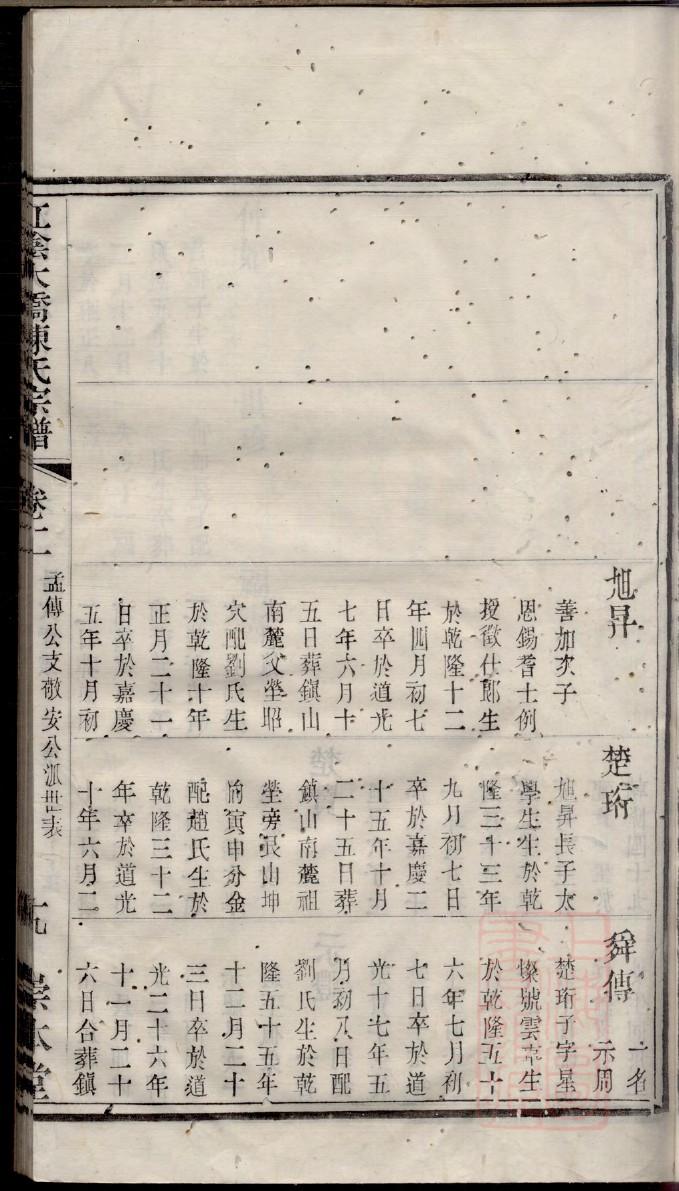 旭昇
善加次子
恩錫耆士例
授徵仕郎生
於乾隆十二
年四月初七
日卒於道光
七年六月十
五日葬鎮山
南麓父塋昭
穴配劉氏生
於乾隆十年
正月二十一
日卒於嘉慶
五年十月初
楚珩
旭昇長子太
學生生於乾
隆三十三年
九月初七日
卒於嘉慶二
十五年十月
二十五日葬
鎮山南麓祖
塋旁艮山坤
向寅申分金
配趙氏生於
乾隆三十二
年卒於道光
十年六月二
舜傳
一名
示周
楚珩子字星
燦號雲亭生
於乾隆五十
六年七月初
七日卒於道
光十七年五
月初八日配
劉氏生於乾
隆五十五年
十二月二十
三日卒於道
光二十六年
十一月二十
六日合葬鎮
江陰大橋陳氏宗譜
卷二
孟傳公支敬安公派世表
崇本堂